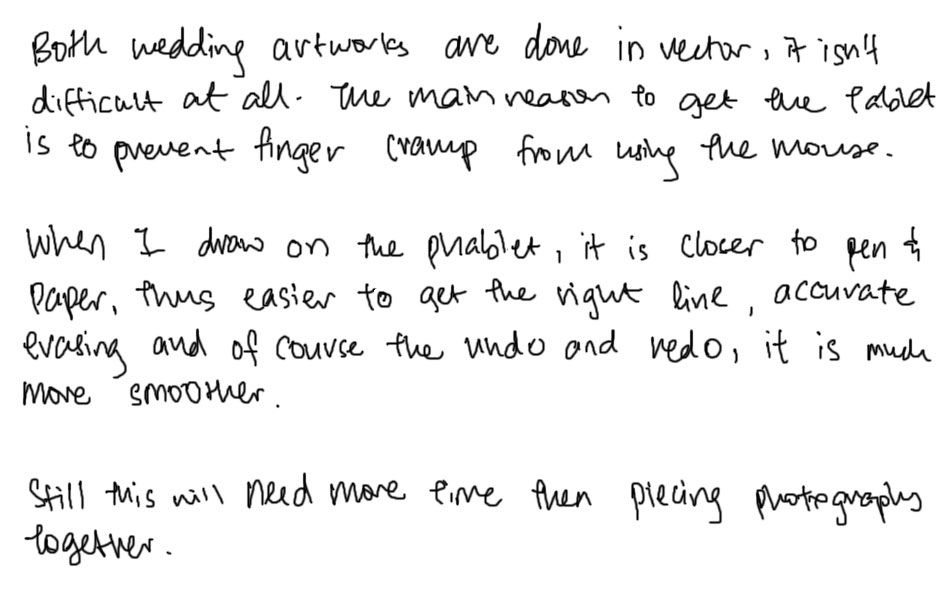 Both wedding artworks are done in vector, it isn't
difficult at all. The main reason to get the tablet
is to prevent finger cramp from using the mouse.
When I draw on the phablet, it is closer to pen &
paper, thus easier to get the right line, accurate
erasing and of course the undo and redo, it is much
more smoother.
Still this will need more time then piecing photographs
together.